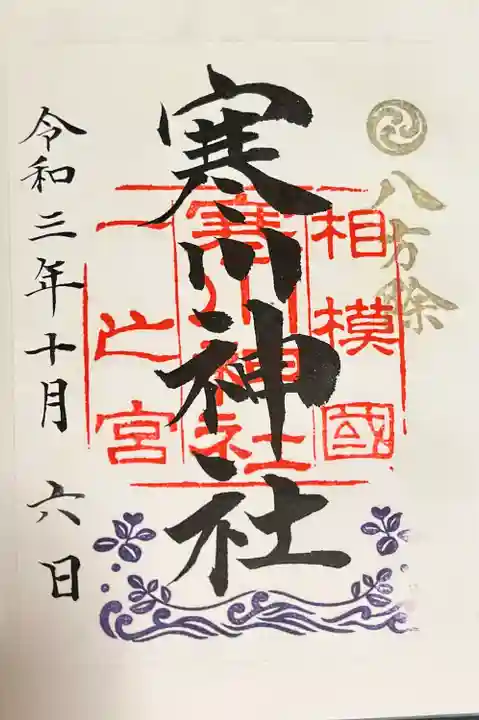 八方除
相模國
寒川神社
一之宮
寒川神社
令和三年十月六日